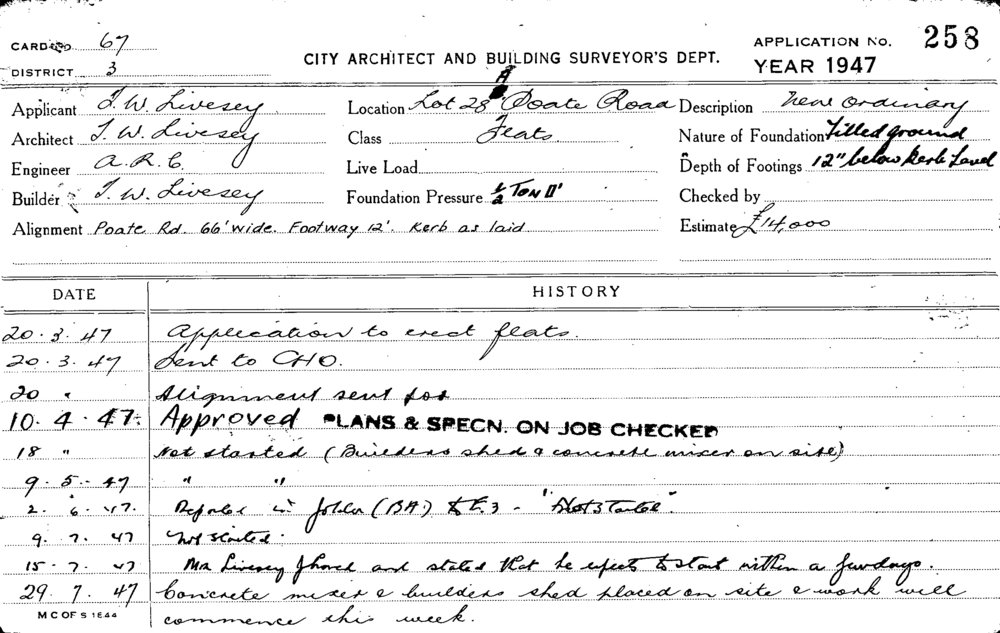 CARD NO 67
DISTRICT 3
CITY ARCHITECT AND BUILDING SURVEYOR'S DEPT.
APPLICATION No. 258
YEAR 1947
Applicant T. W. Livesey Location Lot 28A Poate Road Description New Ordinary
Architect T. W. Livesey Class Flats Nature of Foundation Filled ground
Engineer A. R. C. Live Load Depth of Footings 12" below Kerb Level
Builder T. W. Livesey Foundation Pressure ½ TON □' Checked by
Alignment Poate Rd. 66' wide. Footway 12'. Kerb as laid Estimate £14,000
DATE HISTORY
20. 3. 47 Application to erect flats.
20. 3. 47 Sent to CHO.
20 " Alignment sent for
10. 4. 47. Approved PLANS & SPECN. ON JOB CHECKED
18 " Not started (Builders shed & concrete mixer on site)
9. 5. 47 " "
2. 6. 47. Reported in folder (BA) - "Not Started".
9. 7. 47 Not started.
15. 7. 47 Mr Livesey phoned and stated that he expects to start within a few days.
29. 7. 47 Concrete mixer & builders shed placed on site & work will
commence this week.
M C OF S 1844